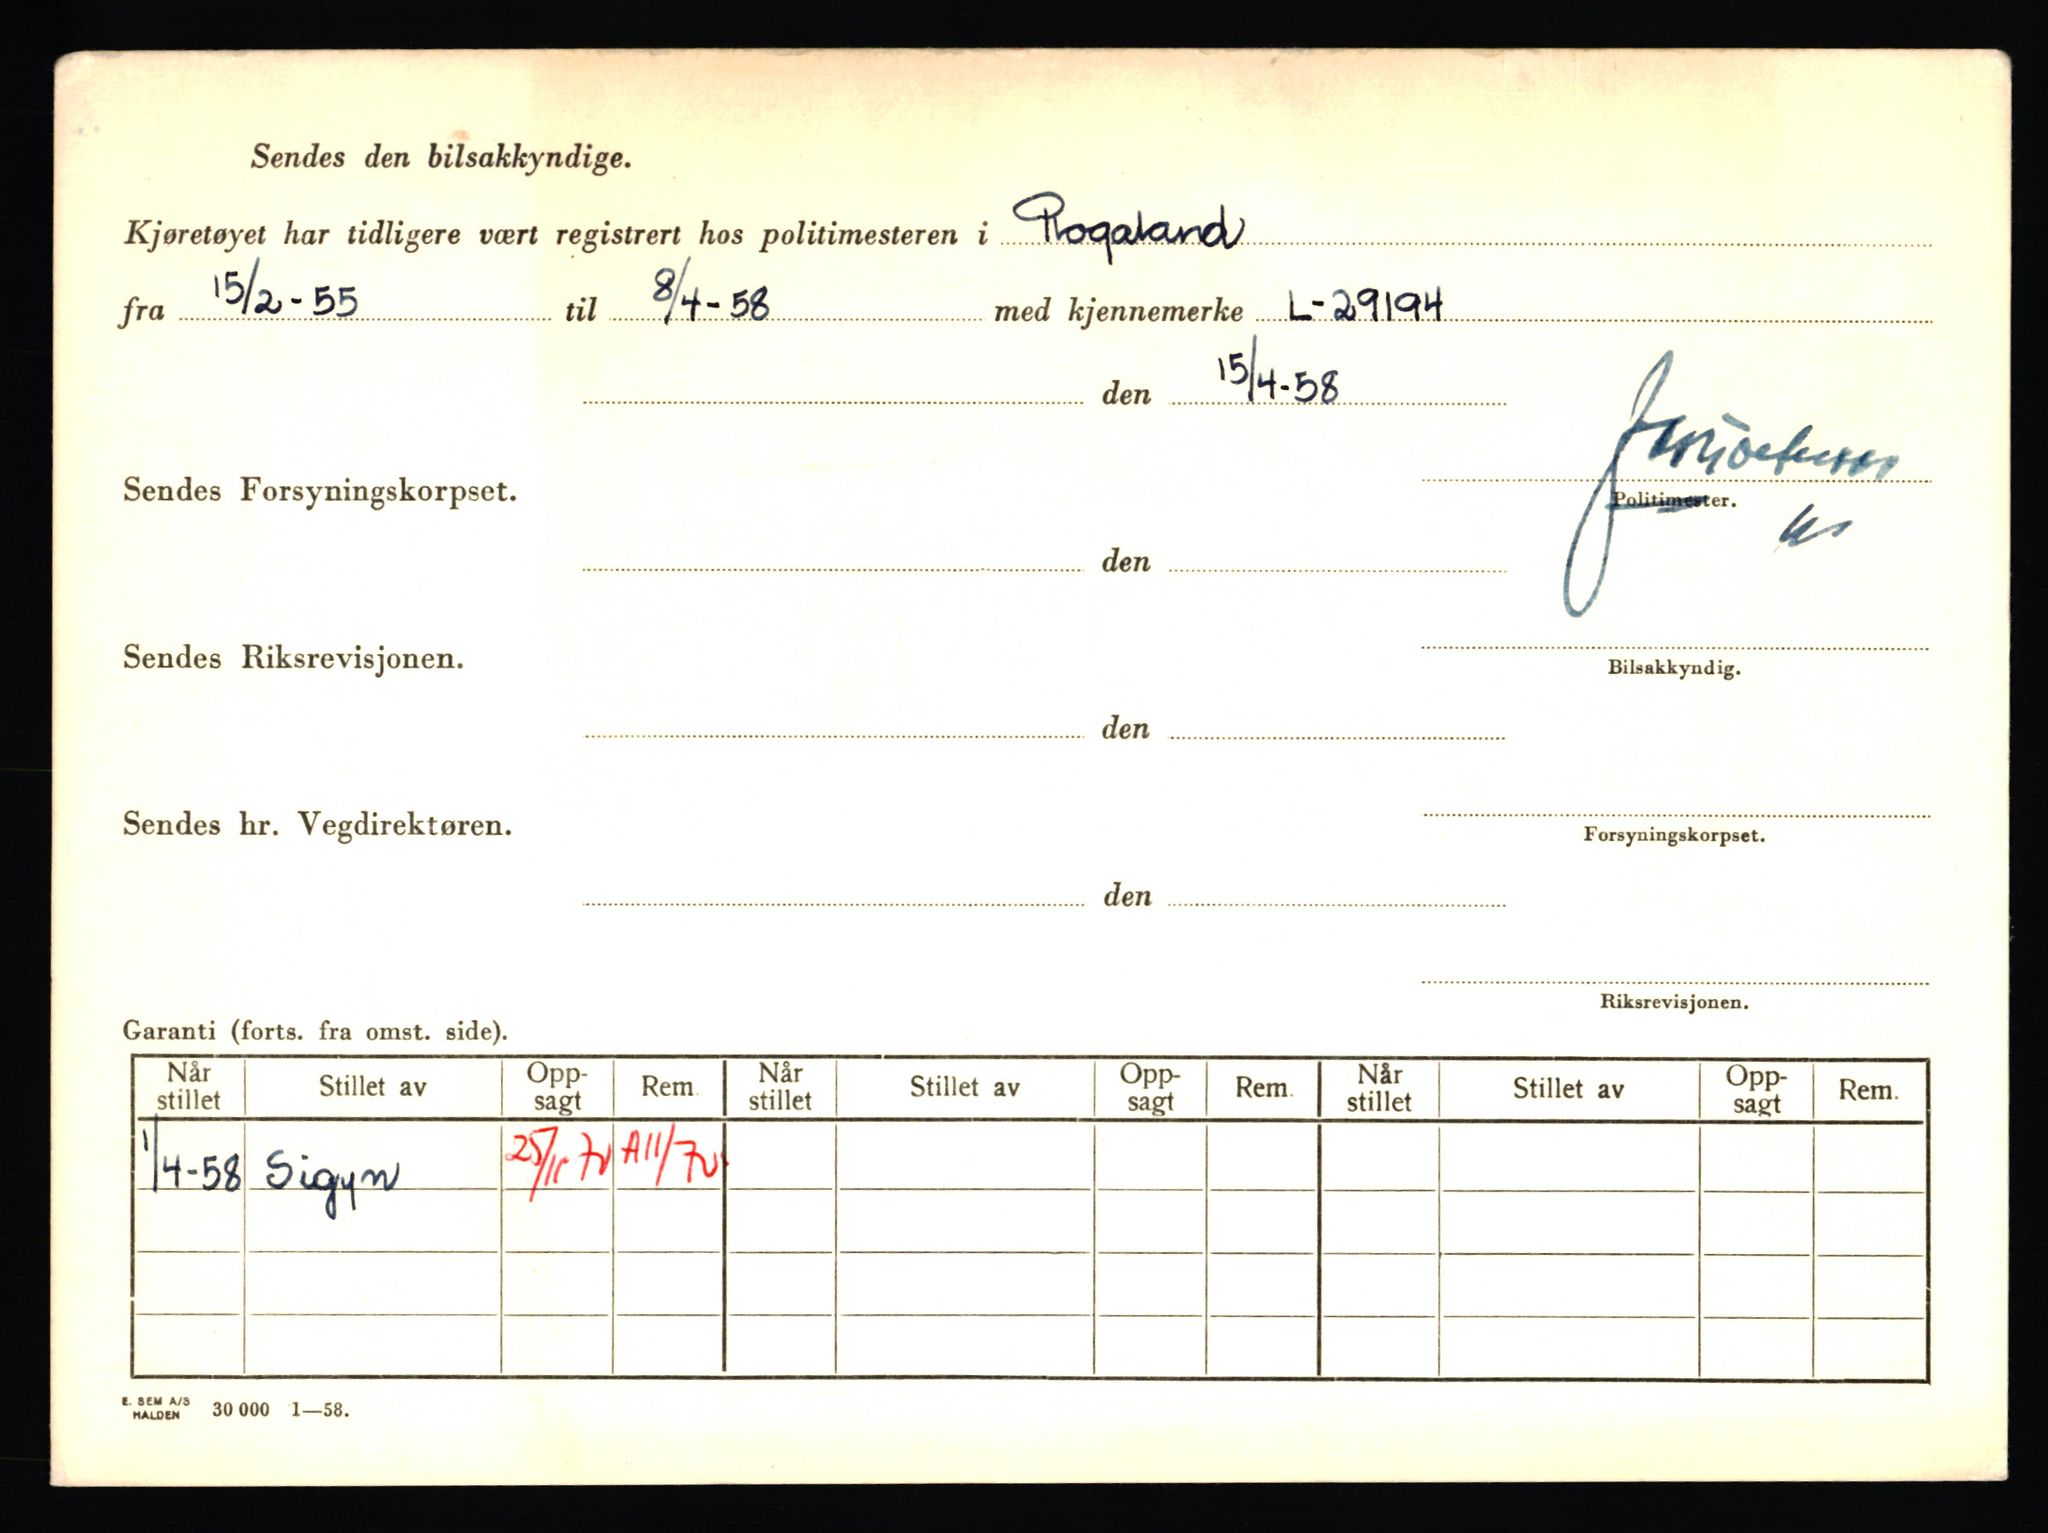 Sendes den bilsakkyndige.
Kjøretøyet har tidligere vært registrert hos politimesteren i Rogaland
fra 15/2-55 til 8/4-58 med kjennemerke L-29194
den 15/4-58
Sendes Forsyningskorpset.
Politimester.
den
Sendes Riksrevisjonen.
Bilsakkyndig.
den
Sendes hr. Vegdirektøren.
Forsyningskorpset.
den
Riksrevisjonen.
Garanti (forts. fra omst. side).
Når stillet Stillet av Opp-sagt Rem. Når stillet Stillet av Opp-sagt Rem. Når stillet Stillet av Opp-sagt Rem.
1/4-58 Sigyn A11/72
E. SEM A/S
HALDEN 30 000 1—58.